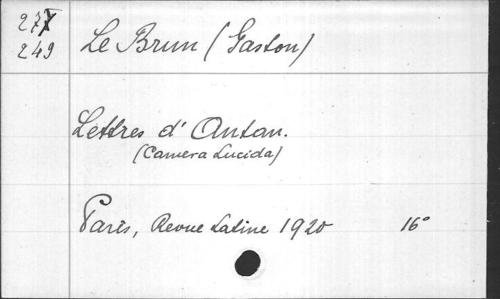 277 Le Brun (Gaston)
249
Lettres d'Antan.
(Camera Lucida)
Paris, Revue Latine 1920 16°